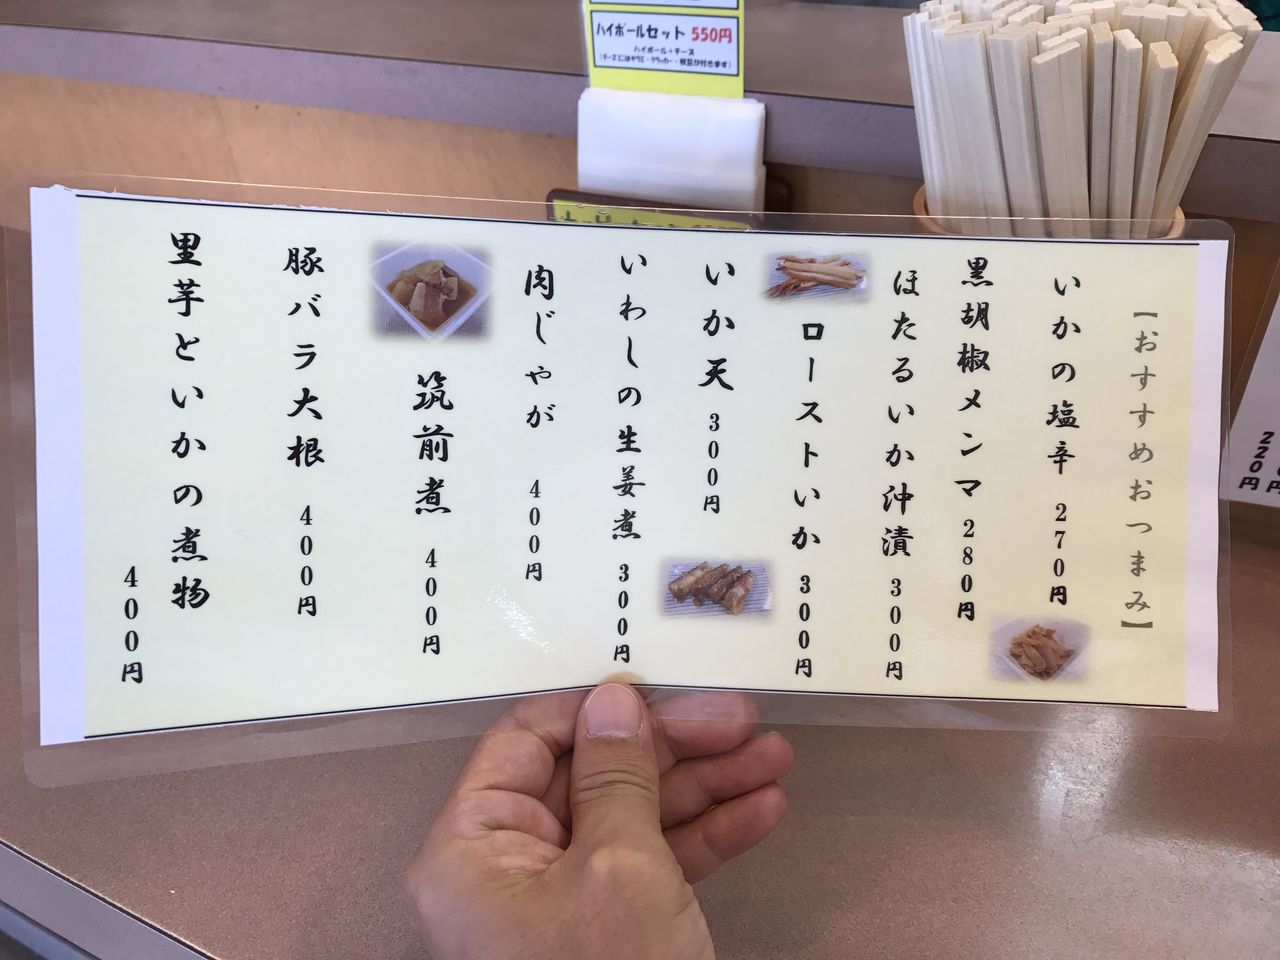 ハイボールセット 550円
ハイボール+チーズ
(チーズにはサラミ・クラッカー・枝豆が付きます)
【おすすめおつまみ】
いかの塩辛 270円
黒胡椒メンマ 280円
ほたるいか沖漬 300円
ローストいか 300円
いか天 300円
いわしの生姜煮 300円
肉じゃが 400円
筑前煮 400円
豚バラ大根 400円
里芋といかの煮物
400円
220円